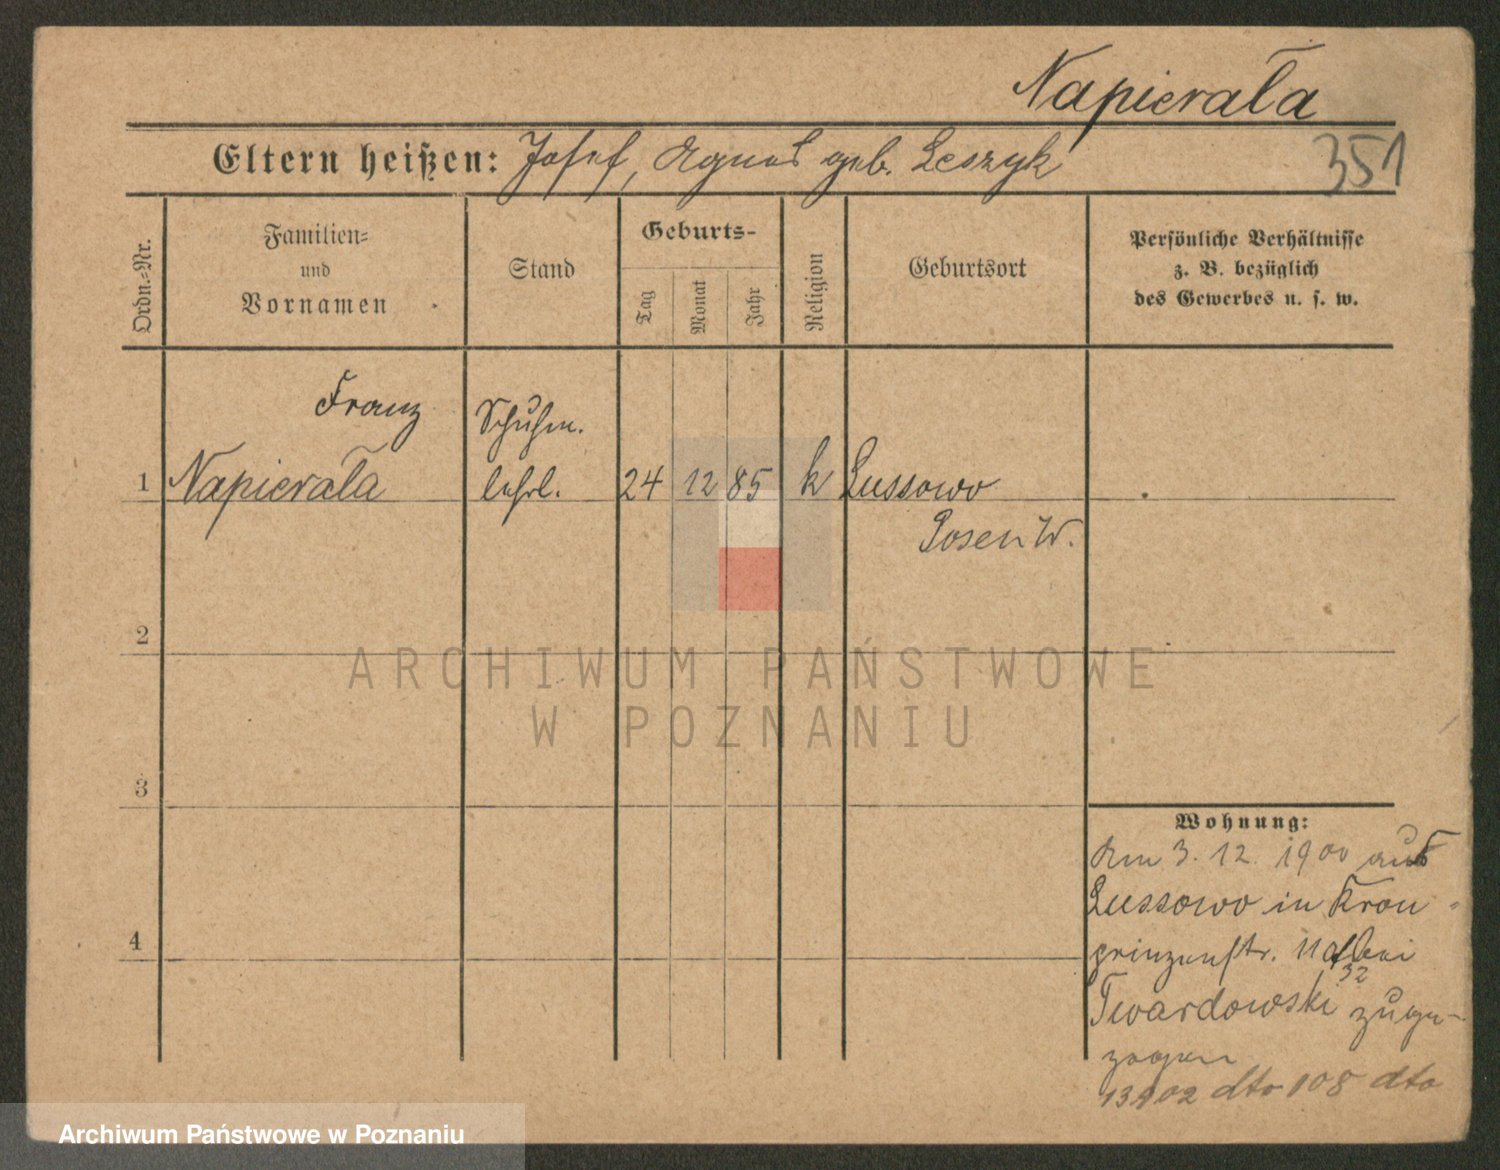 Napierała
Eltern heißen: Josef, Agnes geb. Leszyk
351
Ordn.-Nr.
Familien-
und
Vornamen
Stand
Geburts-
Tag
Monat
Jahr
Religion
Geburtsort
Persönliche Verhältnisse
z. B. bezüglich
des Gewerbes u. s. w.
Franz Schuhm.
1 Napierała lehrl. 24 12 85 k Lussowo
Posen W.
2
ARCHIWUM PAŃSTWOWE
W POZNANIU
3
4
Wohnung:
Am 3. 12. 1900 aus
Lussowo in Kron-
prinzenstr. 11 bei
32
Twardowski zuge-
zogen
02 dto 108 dto
Archiwum Państwowe w Poznaniu